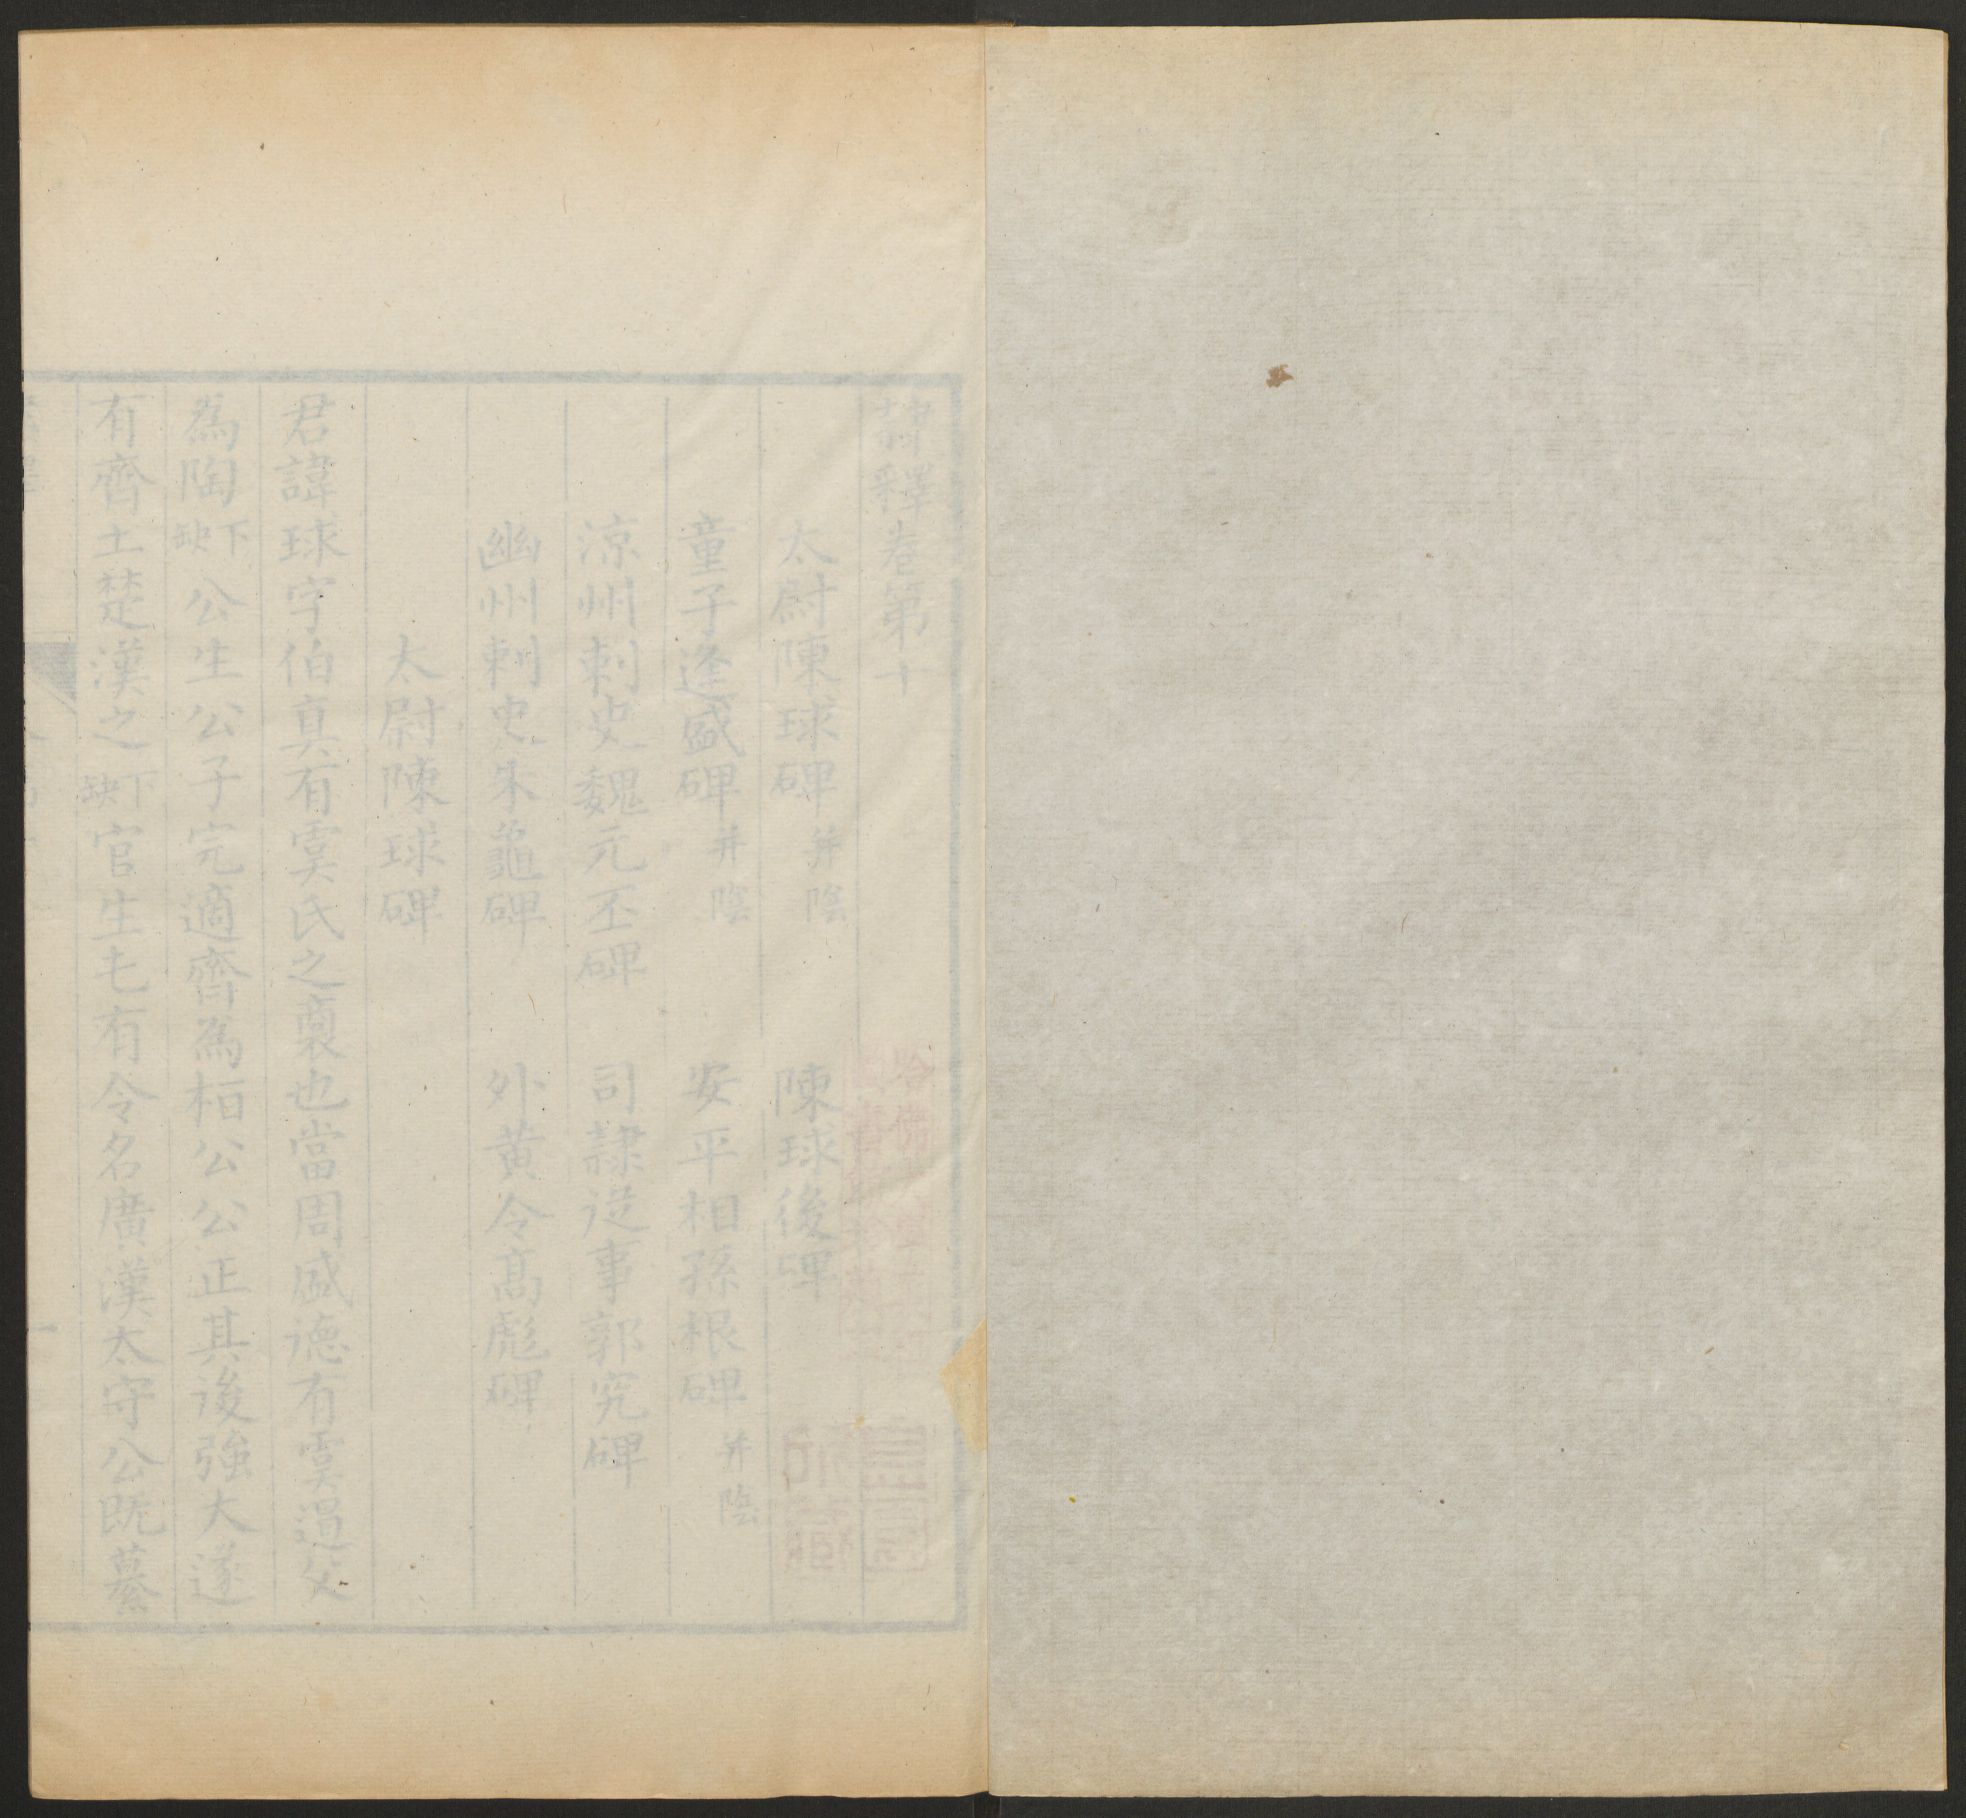 隸釋卷第十
太尉陳球碑并陰　陳球後碑
童子逢盛碑并陰　安平相孫根碑并陰
涼州刺史魏元丕碑　司隸從事郭究碑
幽州刺史朱龜碑　外黄令高彪碑
太尉陳球碑
君諱球字伯真有虞氏之裔也當周盛德有虞遏父
為陶下缺公生公子完適齊為桓公公正其後強大遂
有齊土楚漢之下缺官生屯有令名廣漢太守公既纂